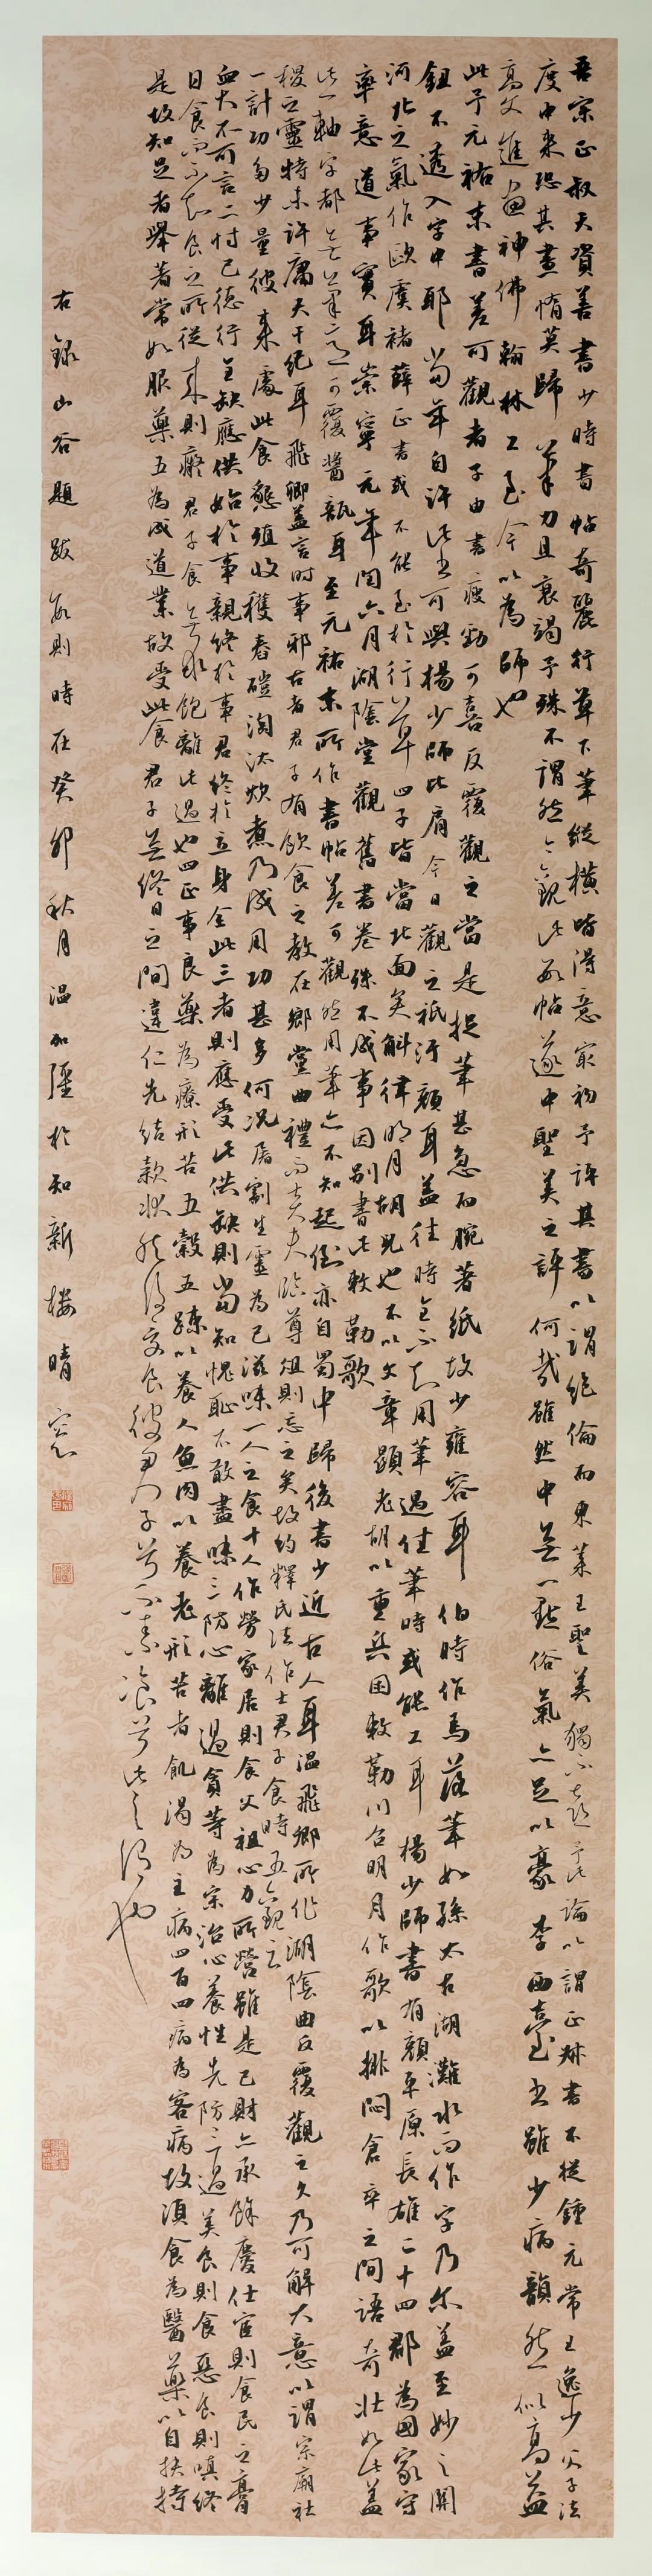 吾宗正叔天資善書少時書帖奇麗行草下筆縱橫皆得意家初予許其書以謂絕倫而東萊王聖美獨不喜予此論以謂正叔書不從鍾元常王逸少父子法
度中來恐其晝惰莫歸筆力且衰竭予殊不謂然今觀此數帖遂中聖美之評何哉雖然中無一點俗氣亦足以豪李西臺書雖少病韻然似高益
高文進畫神佛翰林工至今以為師也
此予元祐末書差可觀者子由書瘦勁可喜反覆觀之當是捉筆甚急而腕著紙故少雍容耳伯時作馬落筆如孫太古湖灘水而作字乃爾蓋至妙之關
鈕不透入字中耶當年自許此書可與楊少師比肩今日觀之祇汗顏耳蓋往時全不知用筆過佳筆時或能工耳楊少師書有顏平原長雄二十四郡為國家守
河北之氣作歐虞褚薛正書或不能至於行草四子皆當北面矣斛律明月胡兒也不以文章顯老胡以重兵困敕勒川召明月作歌以排悶倉卒之間語奇壯如此蓋
率意道事實耳崇寧元年閏六月湖陰堂觀舊書卷殊不成事因別書此敕勒歌
此一軸字都無筆意可覆醬瓿耳至元祐末所作書帖差可觀然用筆亦不知起倒亦自蜀中歸後書少近古人耳溫飛卿所作湖陰曲反覆觀之久乃可解大意以謂宗廟社
稷之靈特未許庸夫干紀耳飛卿蓋言時事邪古者君子有飲食之教在鄉黨曲禮而士大夫臨尊俎則忘之矣故約釋氏法作士君子食時五觀云
一計功多少量彼來處此食懇殖收穫舂磑淘汰炊煮乃成用功甚多何況屠割生靈為己滋味一人之食十人作勞家居則食父祖心力所營雖是己財亦承餘慶仕宦則食民之膏
血大不可言二忖己德行全缺應供始於事親終於事君終於立身全此三者則應受此供缺則當知愧恥不敢盡味三防心離過貪等為宗治心養性先防三過美食則食惡食則嗔終
日食而不知食之所從來則癡君子食無求飽離此過也四正事良藥為療形苦五穀五蔬以養人魚肉以養老形苦者飢渴為主病四百四病為客病故須食為醫藥以自扶持
是故知足者舉箸常如服藥五為成道業故受此食君子無終日之間違仁先結款狀然後受食彼君子兮不素湌兮此之謂也
右錄山谷題跋數則時在癸卯秋月溫加隆於知新樓晴窗